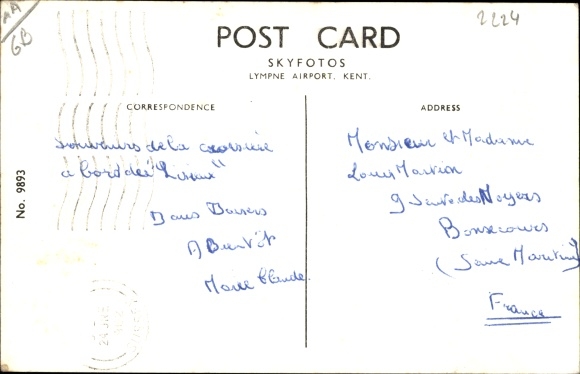 AA
GB
2224
POST CARD
SKYFOTOS
LYMPNE AIRPORT, KENT.
CORRESPONDENCE
ADDRESS
No. 9893
Souvenirs de la croisière
à bord du "Lisieux"
Bons Baisers
A Bientôt
Marie Claude.
Monsieur et Madame
Louis Martin
9 Sente des Noyers
Bonsecours
(Seine Maritime)
France